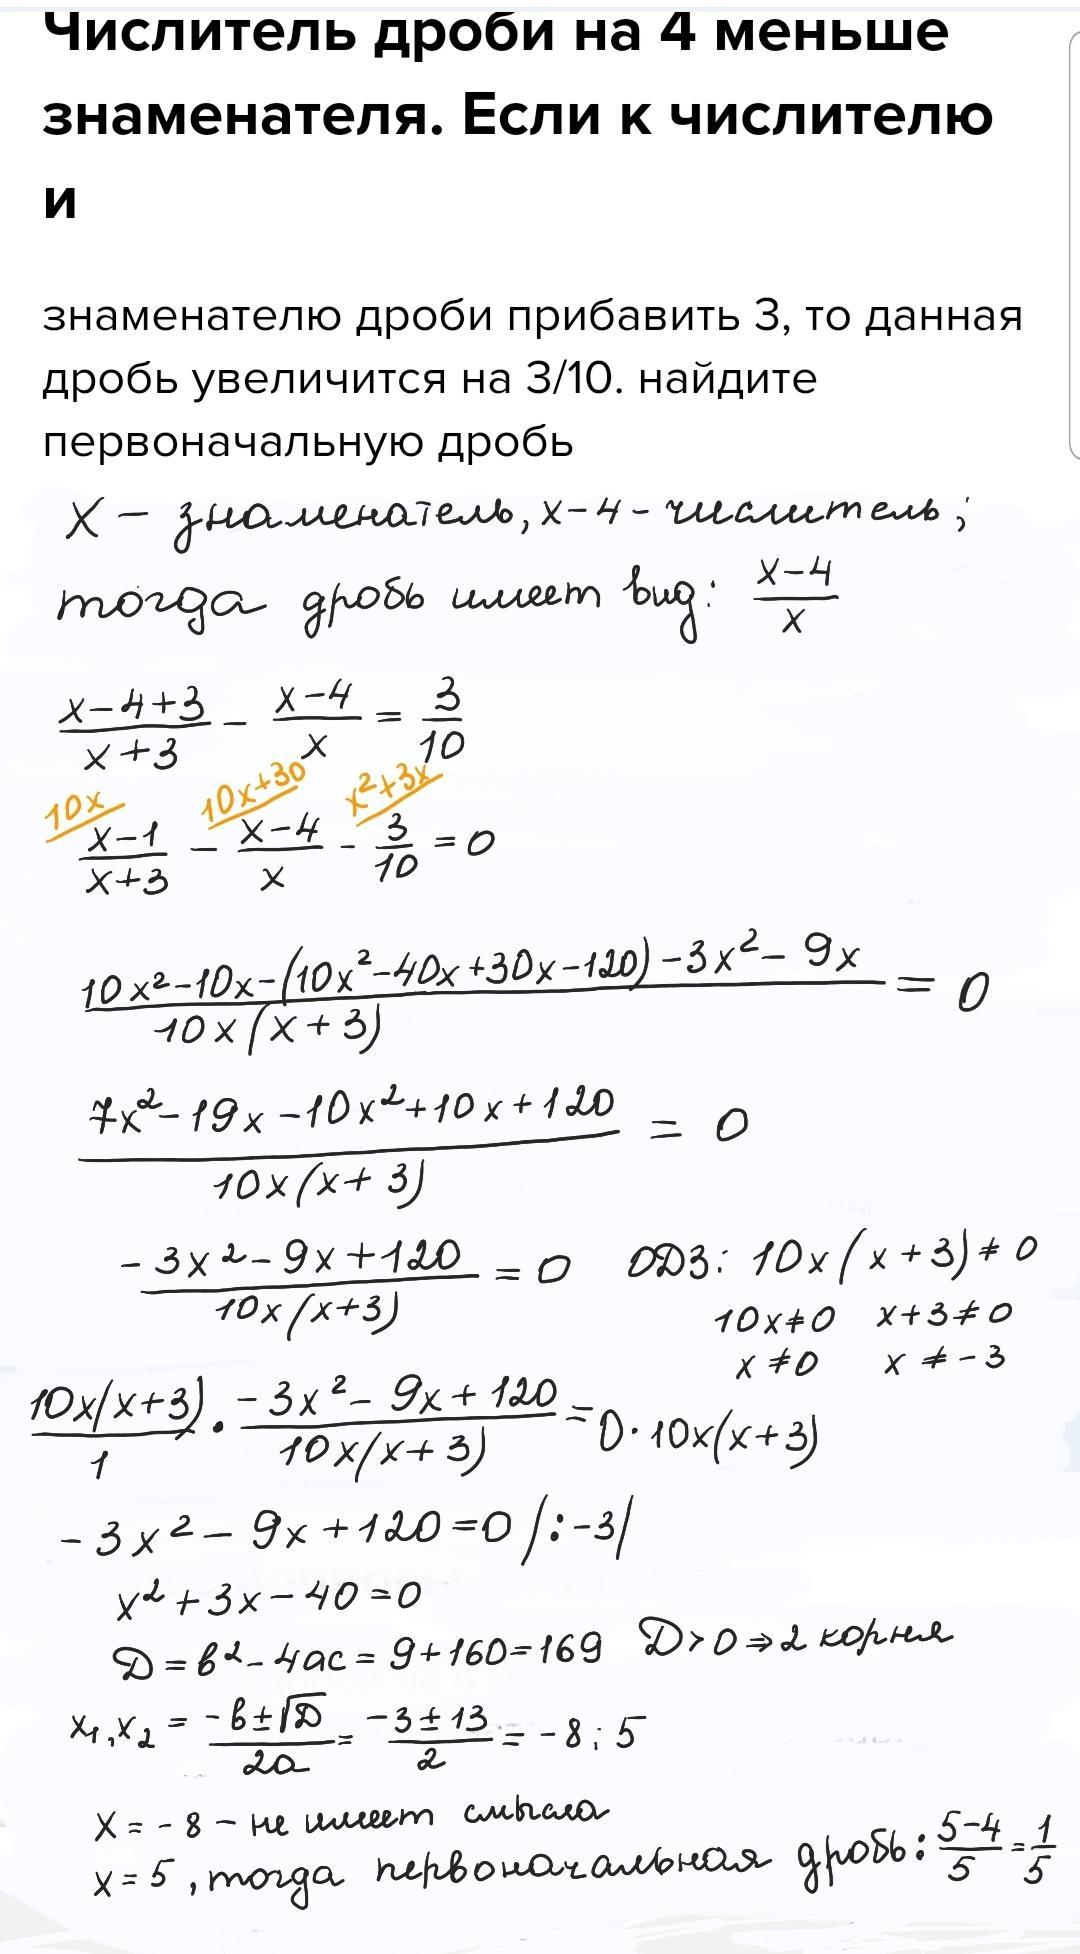 Числитель дроби на 4 меньше
знаменателя. Если к числителю
и
знаменателю дроби прибавить 3, то данная
дробь увеличится на 3/10. найдите
первоначальную дробь
x - знаменатель, x-4 - числитель;
тогда дробь имеет вид: (x-4)/x
(x-4+3)/(x+3) - (x-4)/x = 3/10
10x 10x+30 x²+3x
(x-1)/(x+3) - (x-4)/x - 3/10 = 0
(10x²-10x-(10x²-40x+30x-120)-3x²-9x)/(10x(x+3)) = 0
(7x²-19x-10x²+10x+120)/(10x(x+3)) = 0
(-3x²-9x+120)/(10x(x+3)) = 0 ОДЗ: 10x(x+3)≠0
10x≠0 x+3≠0
x≠0 x≠-3
10x(x+3)/1 · (-3x²-9x+120)/(10x(x+3)) = 0·10x(x+3)
-3x²-9x+120=0 |:-3|
x²+3x-40=0
D=b²-4ac=9+160=169 D>0⇒2 корня
x₁,x₂ = (-b±√D)/2a = (-3±13)/2 = -8; 5
x=-8 - не имеет смысла
x=5, тогда первоначальная дробь: (5-4)/5 = 1/5